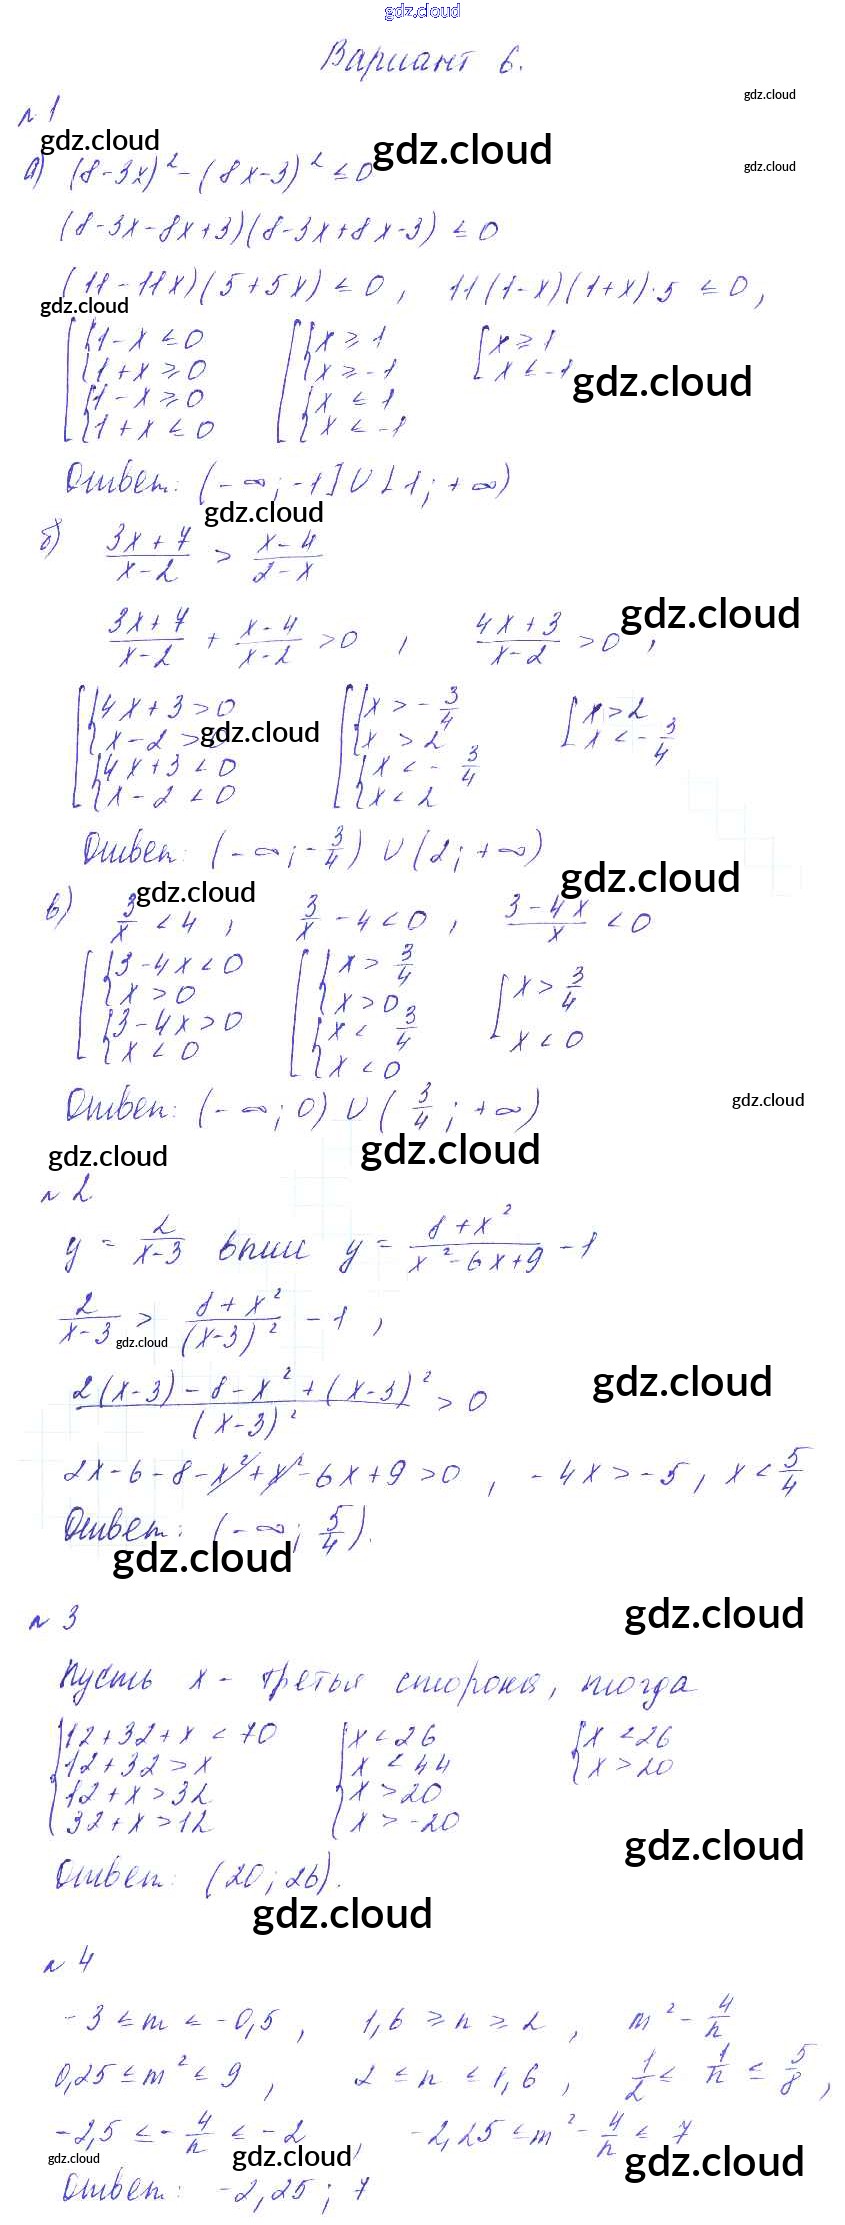 gdz.cloud
Вариант 6.
gdz.cloud
№ 1
gdz.cloud
gdz.cloud
gdz.cloud
а) (8-3x)² - (8x-3)² ≤ 0
(8-3x-8x+3)(8-3x+8x-3) ≤ 0
(11-11x)(5+5x) ≤ 0, 11(1-x)(1+x)·5 ≤ 0,
gdz.cloud
[ { 1-x ≤ 0 [ { x ≥ 1 [ x ≥ 1
1+x ≥ 0 x ≥ -1 x ≤ -1
gdz.cloud
{ 1-x ≥ 0 { x ≤ 1
1+x ≤ 0 x ≤ -1
Ответ: (-∞; -1] ∪ [1; +∞)
gdz.cloud
б) (3x+7)/(x-2) > (x-4)/(2-x)
gdz.cloud
(3x+7)/(x-2) + (x-4)/(x-2) > 0, (4x+3)/(x-2) > 0,
[ { 4x+3 > 0 [ { x > -3/4 [ x > 2
x-2 > 0 x > 2 x < -3/4
gdz.cloud
{ 4x+3 < 0 { x < -3/4
x-2 < 0 x < 2
Ответ: (-∞; -3/4) ∪ (2; +∞)
gdz.cloud
gdz.cloud
в) 3/x < 4, 3/x - 4 < 0, (3-4x)/x < 0
[ { 3-4x < 0 [ { x > 3/4 [ x > 3/4
x > 0 x > 0 x < 0
{ 3-4x > 0 { x < 3/4
x < 0 x < 0
Ответ: (-∞; 0) ∪ (3/4; +∞)
gdz.cloud
gdz.cloud
gdz.cloud
№ 2
y = 2/(x-3) выше y = (8+x²)/(x²-6x+9) - 1
2/(x-3) > (8+x²)/(x-3)² - 1,
gdz.cloud
gdz.cloud
(2(x-3)-8-x²+(x-3)²)/(x-3)² > 0
2x-6-8-x²+x²-6x+9 > 0, -4x > -5, x < 5/4
Ответ: (-∞; 5/4).
gdz.cloud
gdz.cloud
№ 3
Пусть x - третья сторона, тогда
{ 12+32+x < 70 { x < 26 { x < 26
12+32 > x x < 44 x > 20
12+x > 32 x > 20
32+x > 12 x > -20
gdz.cloud
Ответ: (20; 26).
gdz.cloud
№ 4
-3 ≤ m ≤ -0,5, 1,6 ≥ n ≥ 2, m² - 4/n
0,25 ≤ m² ≤ 9, 2 ≤ n ≤ 1,6, 1/2 ≤ 1/n ≤ 5/8,
-2,5 ≤ -4/n ≤ -2, -2,25 ≤ m² - 4/n ≤ 7
gdz.cloud
gdz.cloud
gdz.cloud
Ответ: -2,25; 7